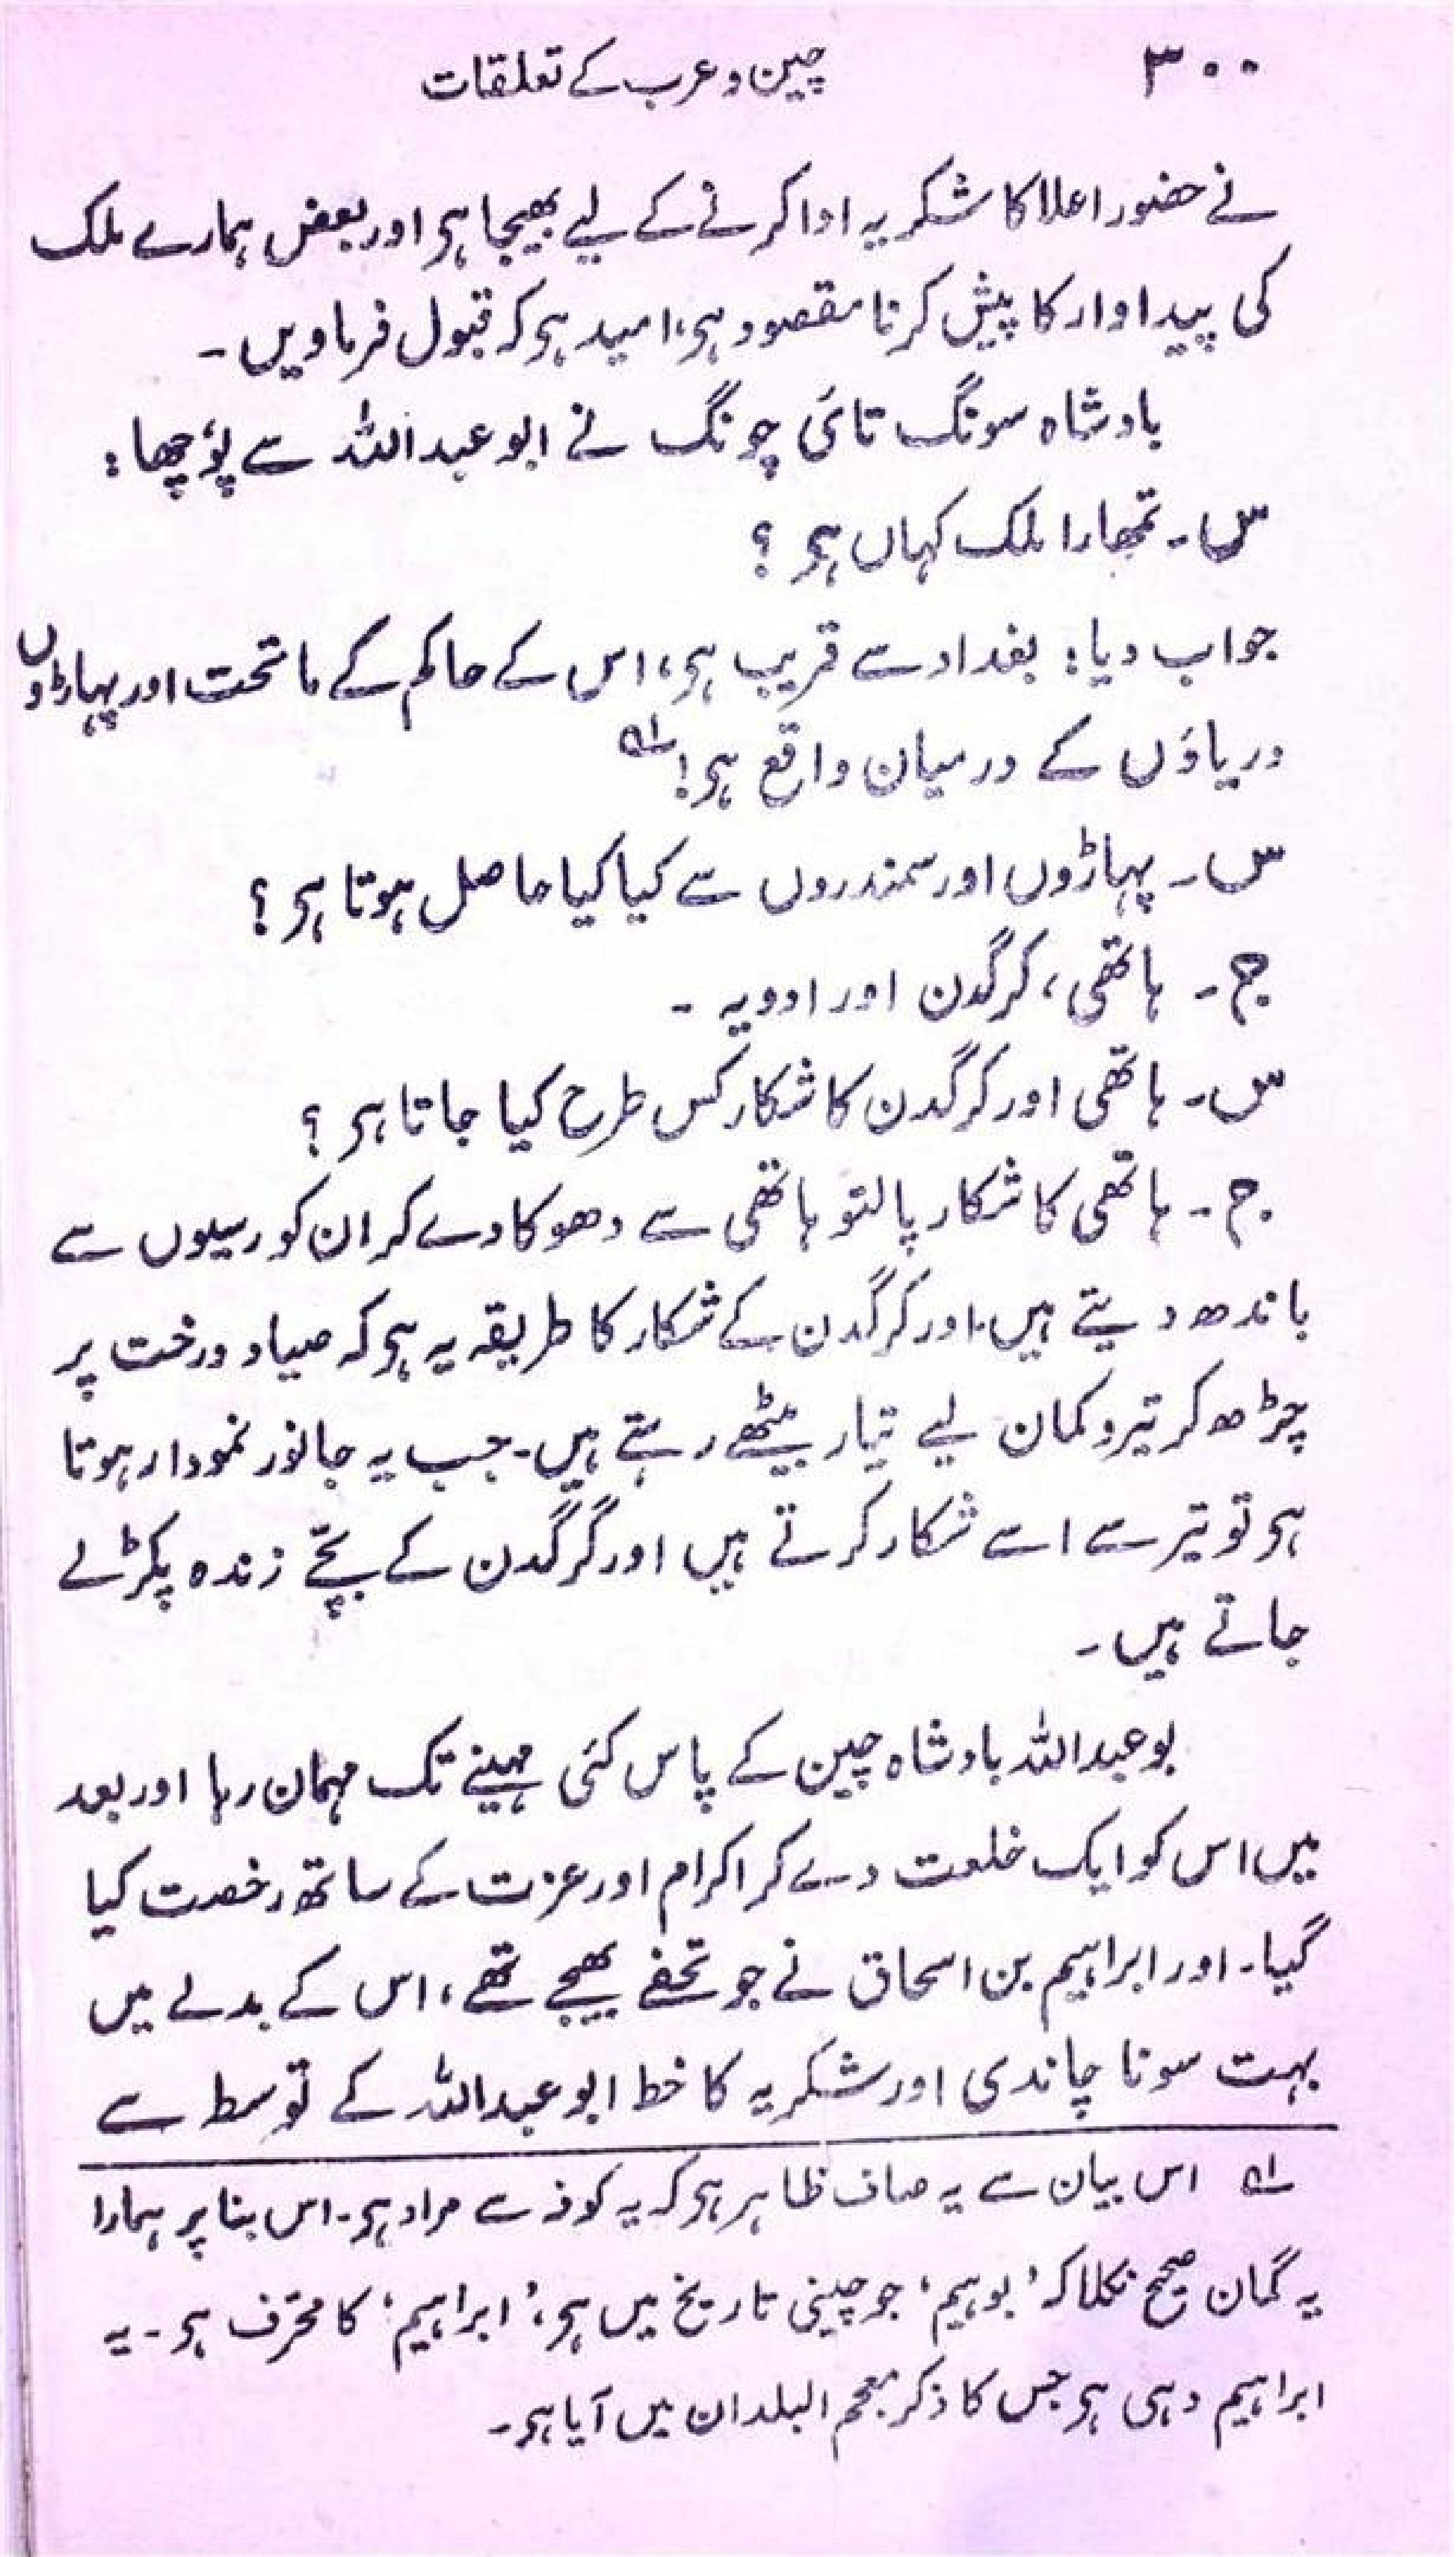 ۳۰۰
چین و عرب کے تعلقات
نے حضور اعلا کا شکریہ ادا کرنے کے لیے بھیجا ہی اور بعض ہمارے ملک
کی پیداوار کا پیش کرنا مقصود ہی، امید ہی کہ قبول فرماویں ۔
بادشاہ سونگ تائی چونگ نے ابو عبداللہ سے پؤچھا :
س ۔ تمھارا ملک کہاں ہی ؟
جواب دیا : بغداد سے قریب ہی، اس کے حاکم کے ماتحت اور پہاڑوں
دریاؤں کے درمیان واقع ہی! ؂۱
س ۔ پہاڑوں اور سمندروں سے کیا کیا حاصل ہوتا ہی ؟
ج ۔ ہاتھی، کرگدن اور ادویہ ۔
س ۔ ہاتھی اور کرگدن کا شکار کس طرح کیا جاتا ہی ؟
ج ۔ ہاتھی کا شکار پالتو ہاتھی سے دھوکا دے کر ان کو رسیوں سے
باندھ دیتے ہیں۔ اور کرگدن کے شکار کا طریقہ یہ ہی کہ صیاد درخت پر
چڑھ کر تیر و کمان لیے تیار بیٹھے رہتے ہیں۔ جب یہ جانور نمودار ہوتا
ہی تو تیر سے اسے شکار کرتے ہیں اور گرگدن کے بچّے زندہ پکڑلے
جاتے ہیں ۔
بوعبداللہ بادشاہ چین کے پاس کئی مہینے تک مہمان رہا اور بعد
میں اس کو ایک خلعت دے کر اکرام اور عزت کے ساتھ رخصت کیا
گیا۔ اور ابراہیم بن اسحاق نے جو تحفے بھیجے تھے، اس کے بدلے میں
بہت سونا چاندی اور شکریہ کا خط ابو عبداللہ کے توسط سے
؂۱ اس بیان سے یہ صاف ظاہر ہی کہ یہ کوفہ سے مراد ہی۔ اس بنا پر ہمارا
یہ گمان صحیح نکلا کہ ’بوہیم‘ جو چینی تاریخ میں ہی، ’ابراہیم‘ کا محرّف ہی ۔ یہ
ابراہیم وہی ہی جس کا ذکر معجم البلدان میں آیا ہی ۔